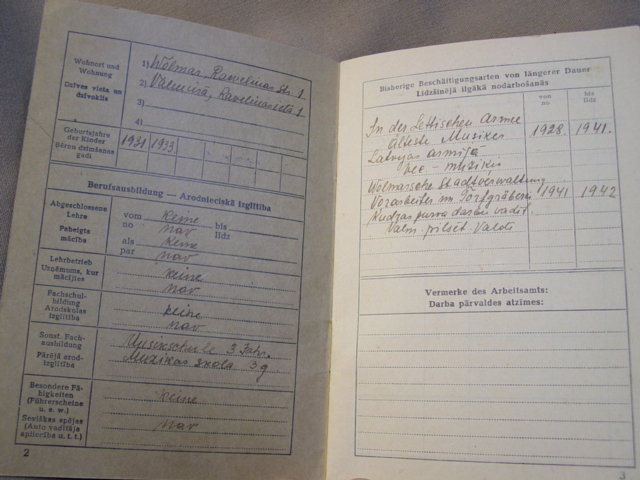 Wohnort und
Wohnung
Dzīves vieta un
dzīvoklis
1) Wolmar, Rawelinas Str. 1
2) Valmierā, Ravelinas ielā 1
3)
4)
Geburtsjahre
der Kinder
Bērnu dzimšanas
gadi
1931 1933
Berufsausbildung — Arodnieciskā izglītība
Abgeschlossene
Lehre
Pabeigta
mācība
vom keine bis
no nav līdz
als keine
par nav
Lehrbetrieb
Uzņēmums, kur
mācījies
keine
nav
Fachschul-
bildung
Arodskolas
izglītība
keine
nav
Sonst. Fach-
ausbildung
Pārējā arod-
izglītība
Musikschule 3 Jahr.
Muzikas skola 3 g.
Besondere Fä-
higkeiten
(Führerscheine
u. s. w.)
Sevišķas spējas
(Auto vadītāja
apliecība u. t. t.)
keine
nav
2
Bisherige Beschäftigungsarten von längerer Dauer
Līdzšinējā ilgākā nodarbošanās
von
no
bis
līdz
In der Lettischen Arme
älteste Musiker 1928. 1941.
Latvijas armijā
vec - muzikis
Wolmarsche Stadtverwaltung
Vorarbeiter im Torfgräben 1941 1942
Kudras purva darbu vadīt.
Valm. pilsēt. Valdē
Vermerke des Arbeitsamts:
Darba pārvaldes atzīmes:
3